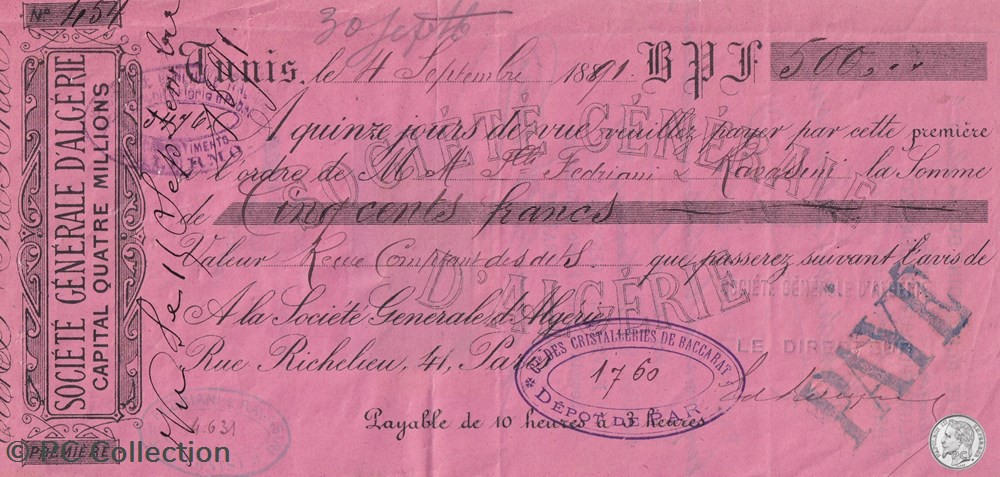 No 454
SOCIÉTÉ GÉNÉRALE D'ALGÉRIE
CAPITAL QUATRE MILLIONS
PREMIÈRE
30 Septbre
Tunis, le 4 Septembre 1891. B P F 500
A quinze jours de vue veuillez payer par cette première
l'ordre de M Fedriani & la Somme
de Cinq cents francs
Valeur Recue Comptant des dits que passerez suivant l'avis de
A la Société Générale d'Algérie
Rue Richelieu, 41, Paris
Payable de 10 heures à 3 heures
SOCIÉTÉ GÉNÉRALE
D'ALGÉRIE
SOCIÉTÉ GÉNÉRALE D'ALGÉRIE
LE DIRECTEUR
PAYÉ
CIE DES CRISTALLERIES DE BACCARAT
1760
DÉPÔT DE BAR
4.631
© PC Collection